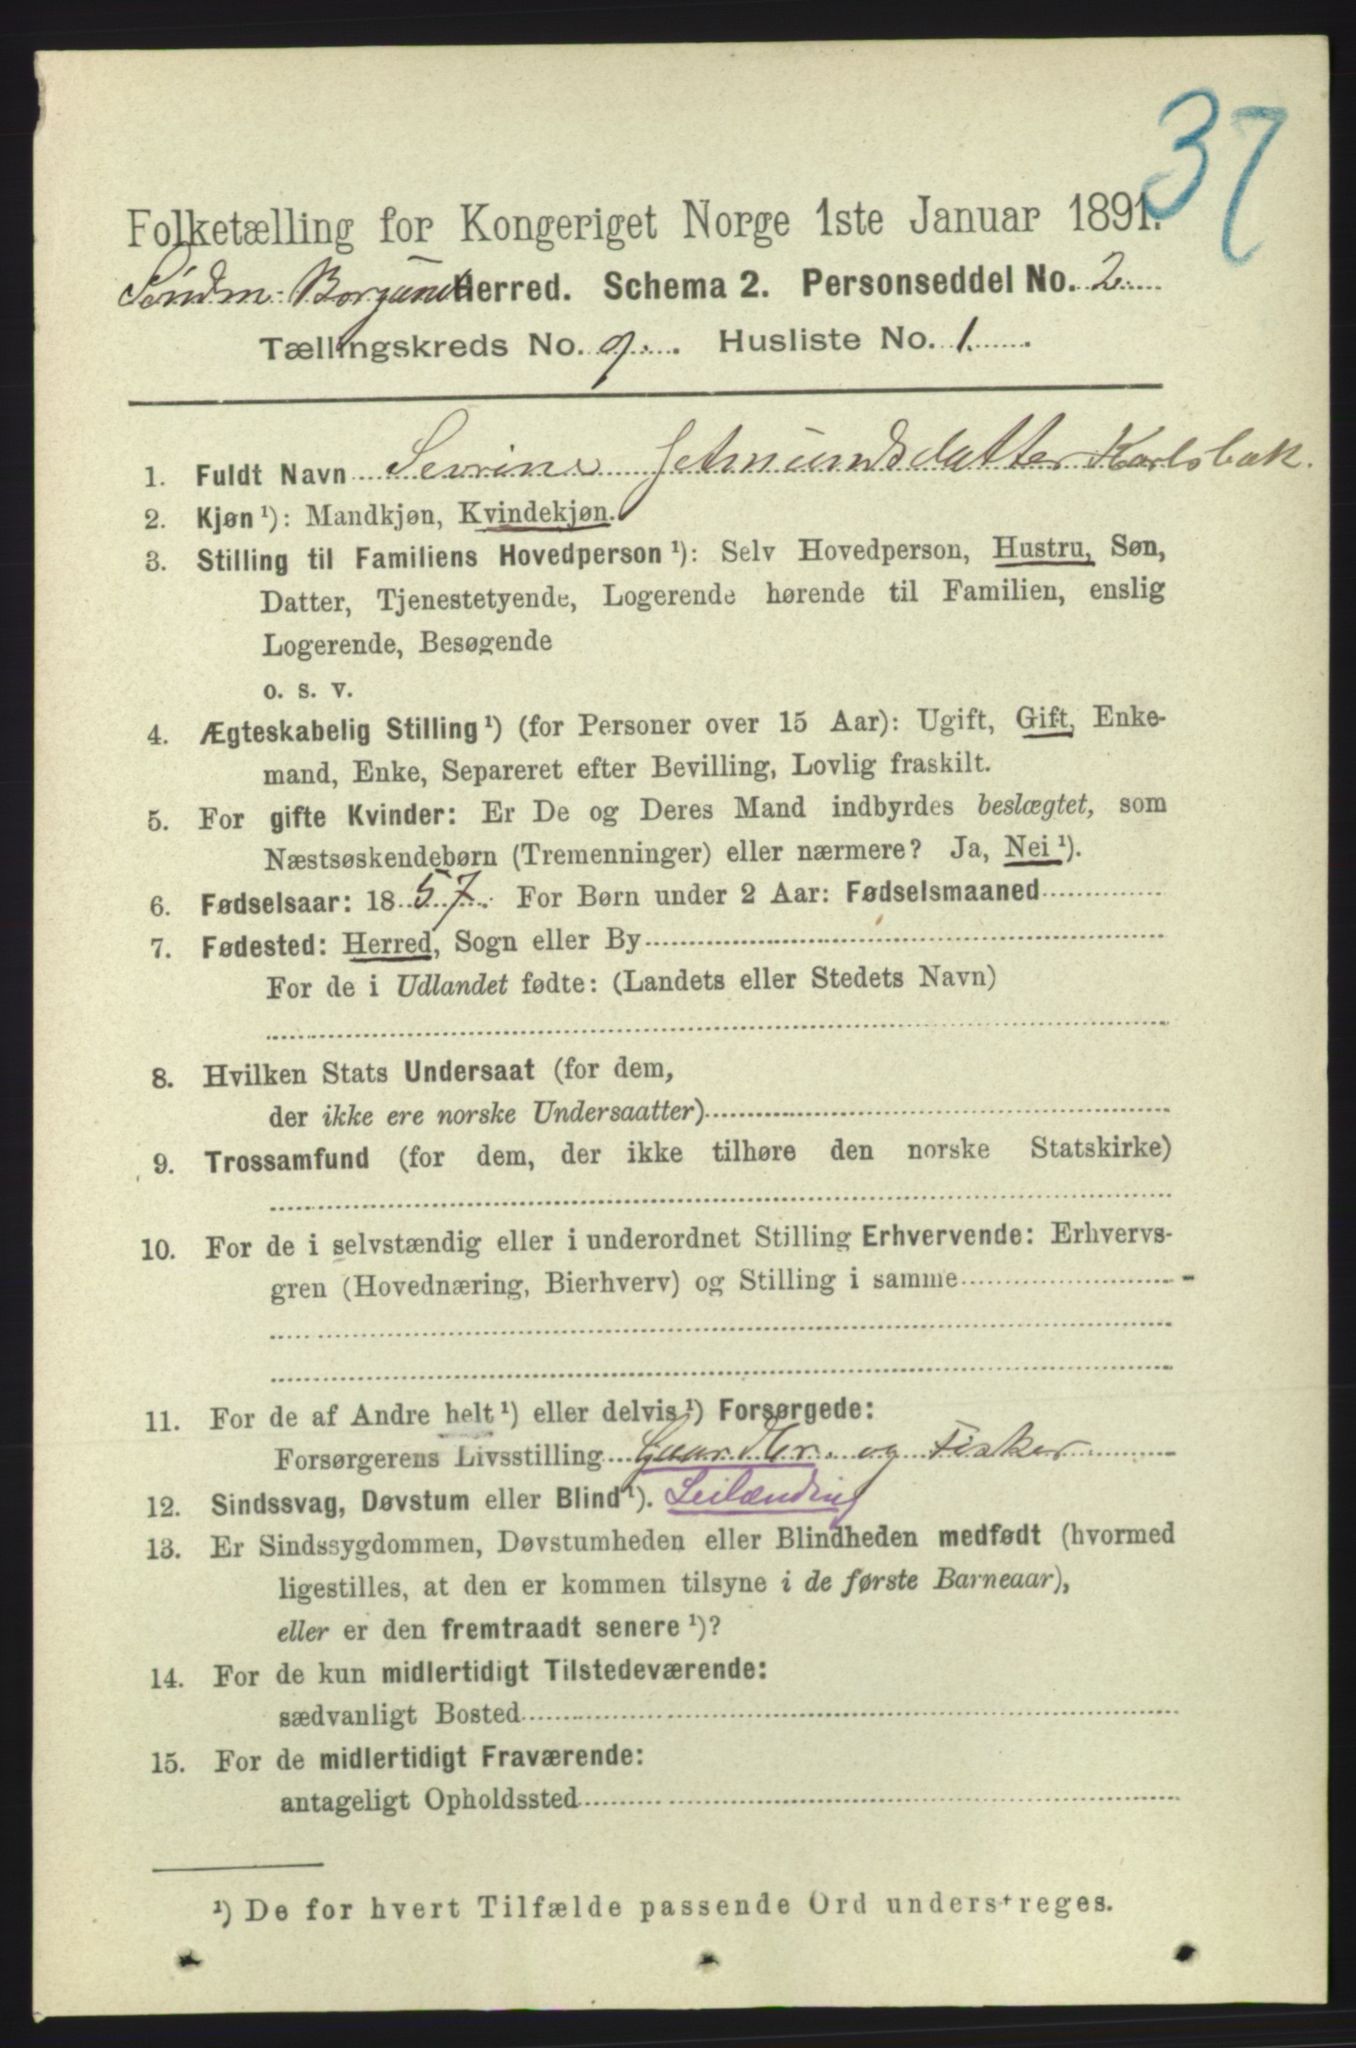 37
Folketælling for Kongeriget Norge 1ste Januar 1891.
Søndm: Borgund Herred. Schema 2. Personseddel No. 2
Tællingskreds No. 9. Husliste No. 1.
1. Fuldt Navn Sevrine Jetmundsdatter Karlsbak.
2. Kjøn ¹): Mandkjøn, Kvindekjøn.
3. Stilling til Familiens Hovedperson ¹): Selv Hovedperson, Hustru, Søn,
Datter, Tjenestetyende, Logerende hørende til Familien, enslig
Logerende, Besøgende
o. s. v.
4. Ægteskabelig Stilling ¹) (for Personer over 15 Aar): Ugift, Gift, Enke-
mand, Enke, Separeret efter Bevilling, Lovlig fraskilt.
5. For gifte Kvinder: Er De og Deres Mand indbyrdes beslægtet, som
Næstsøskendebørn (Tremenninger) eller nærmere? Ja, Nei ¹).
6. Fødselsaar: 1857. For Børn under 2 Aar: Fødselsmaaned
7. Fødested: Herred, Sogn eller By
For de i Udlandet fødte: (Landets eller Stedets Navn)
8. Hvilken Stats Undersaat (for dem,
der ikke ere norske Undersaatter)
9. Trossamfund (for dem, der ikke tilhøre den norske Statskirke)
10. For de i selvstændig eller i underordnet Stilling Erhvervende: Erhvervs-
gren (Hovednæring, Bierhverv) og Stilling i samme -
11. For de af Andre helt ¹) eller delvis ¹) Forsørgede:
Forsørgerens Livsstilling Gaardbr. og Fisker
12. Sindssvag, Døvstum eller Blind ¹). Leilænding
13. Er Sindssygdommen, Døvstumheden eller Blindheden medfødt (hvormed
ligestilles, at den er kommen tilsyne i de første Barneaar),
eller er den fremtraadt senere ¹)?
14. For de kun midlertidigt Tilstedeværende:
sædvanligt Bosted
15. For de midlertidigt Fraværende:
antageligt Opholdssted
¹) De for hvert Tilfælde passende Ord understreges.